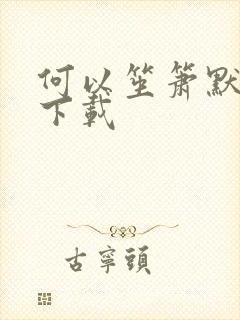 何以笙箫默
下載
古寧頭